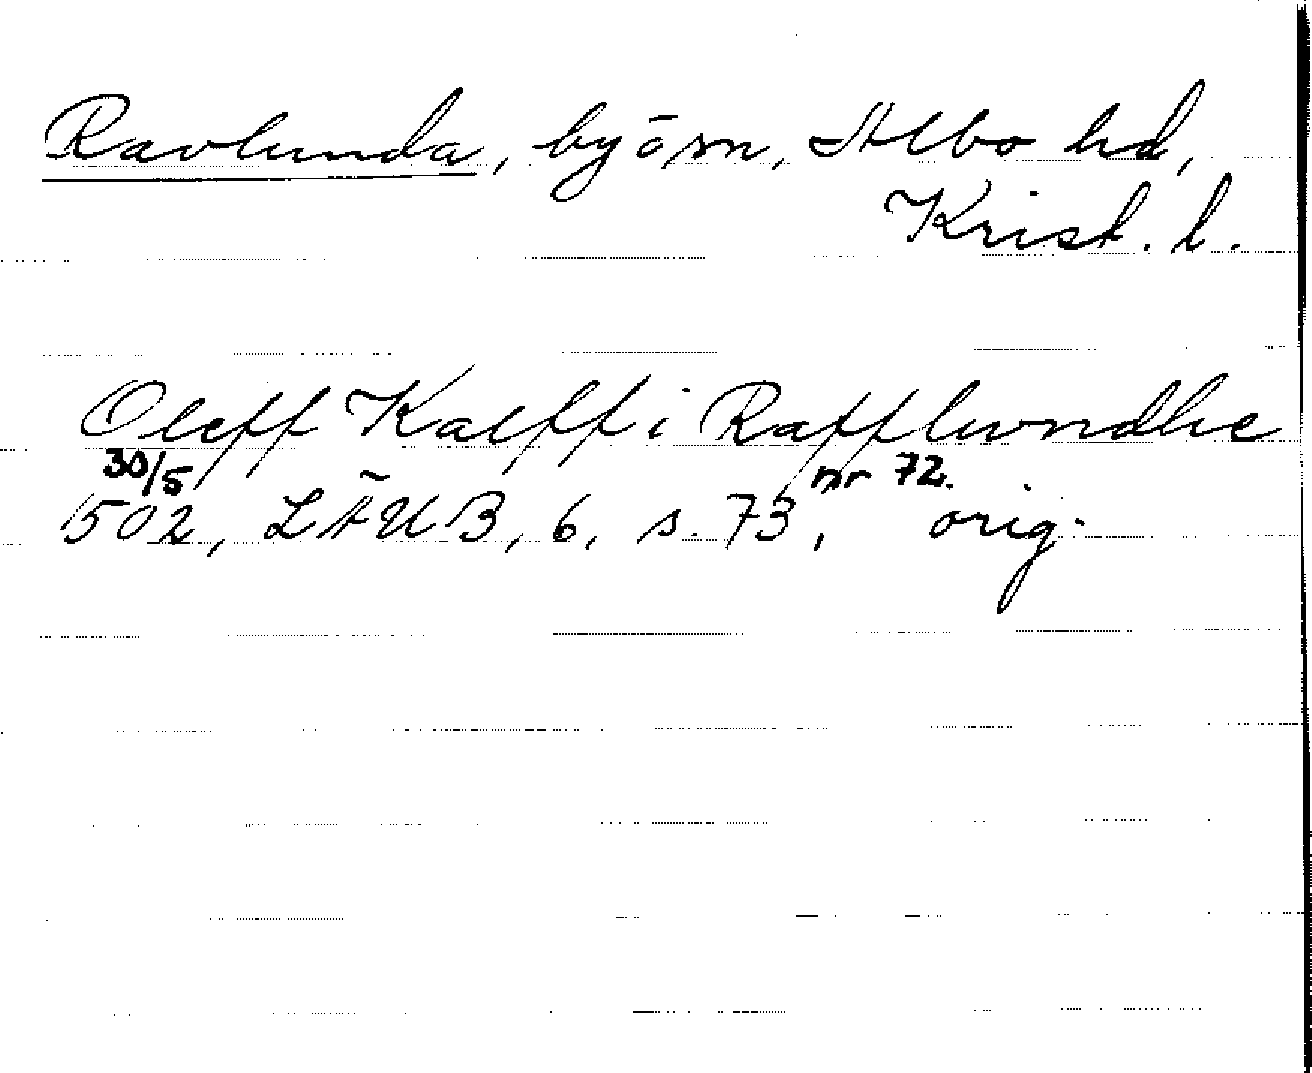 Ravlunda, by ö sn, Albo hd,
Krist. l.
Oleff Kalff i Rafflwndhe
30/5 nr 72.
1502, LÄUB, 6, s. 73, orig.